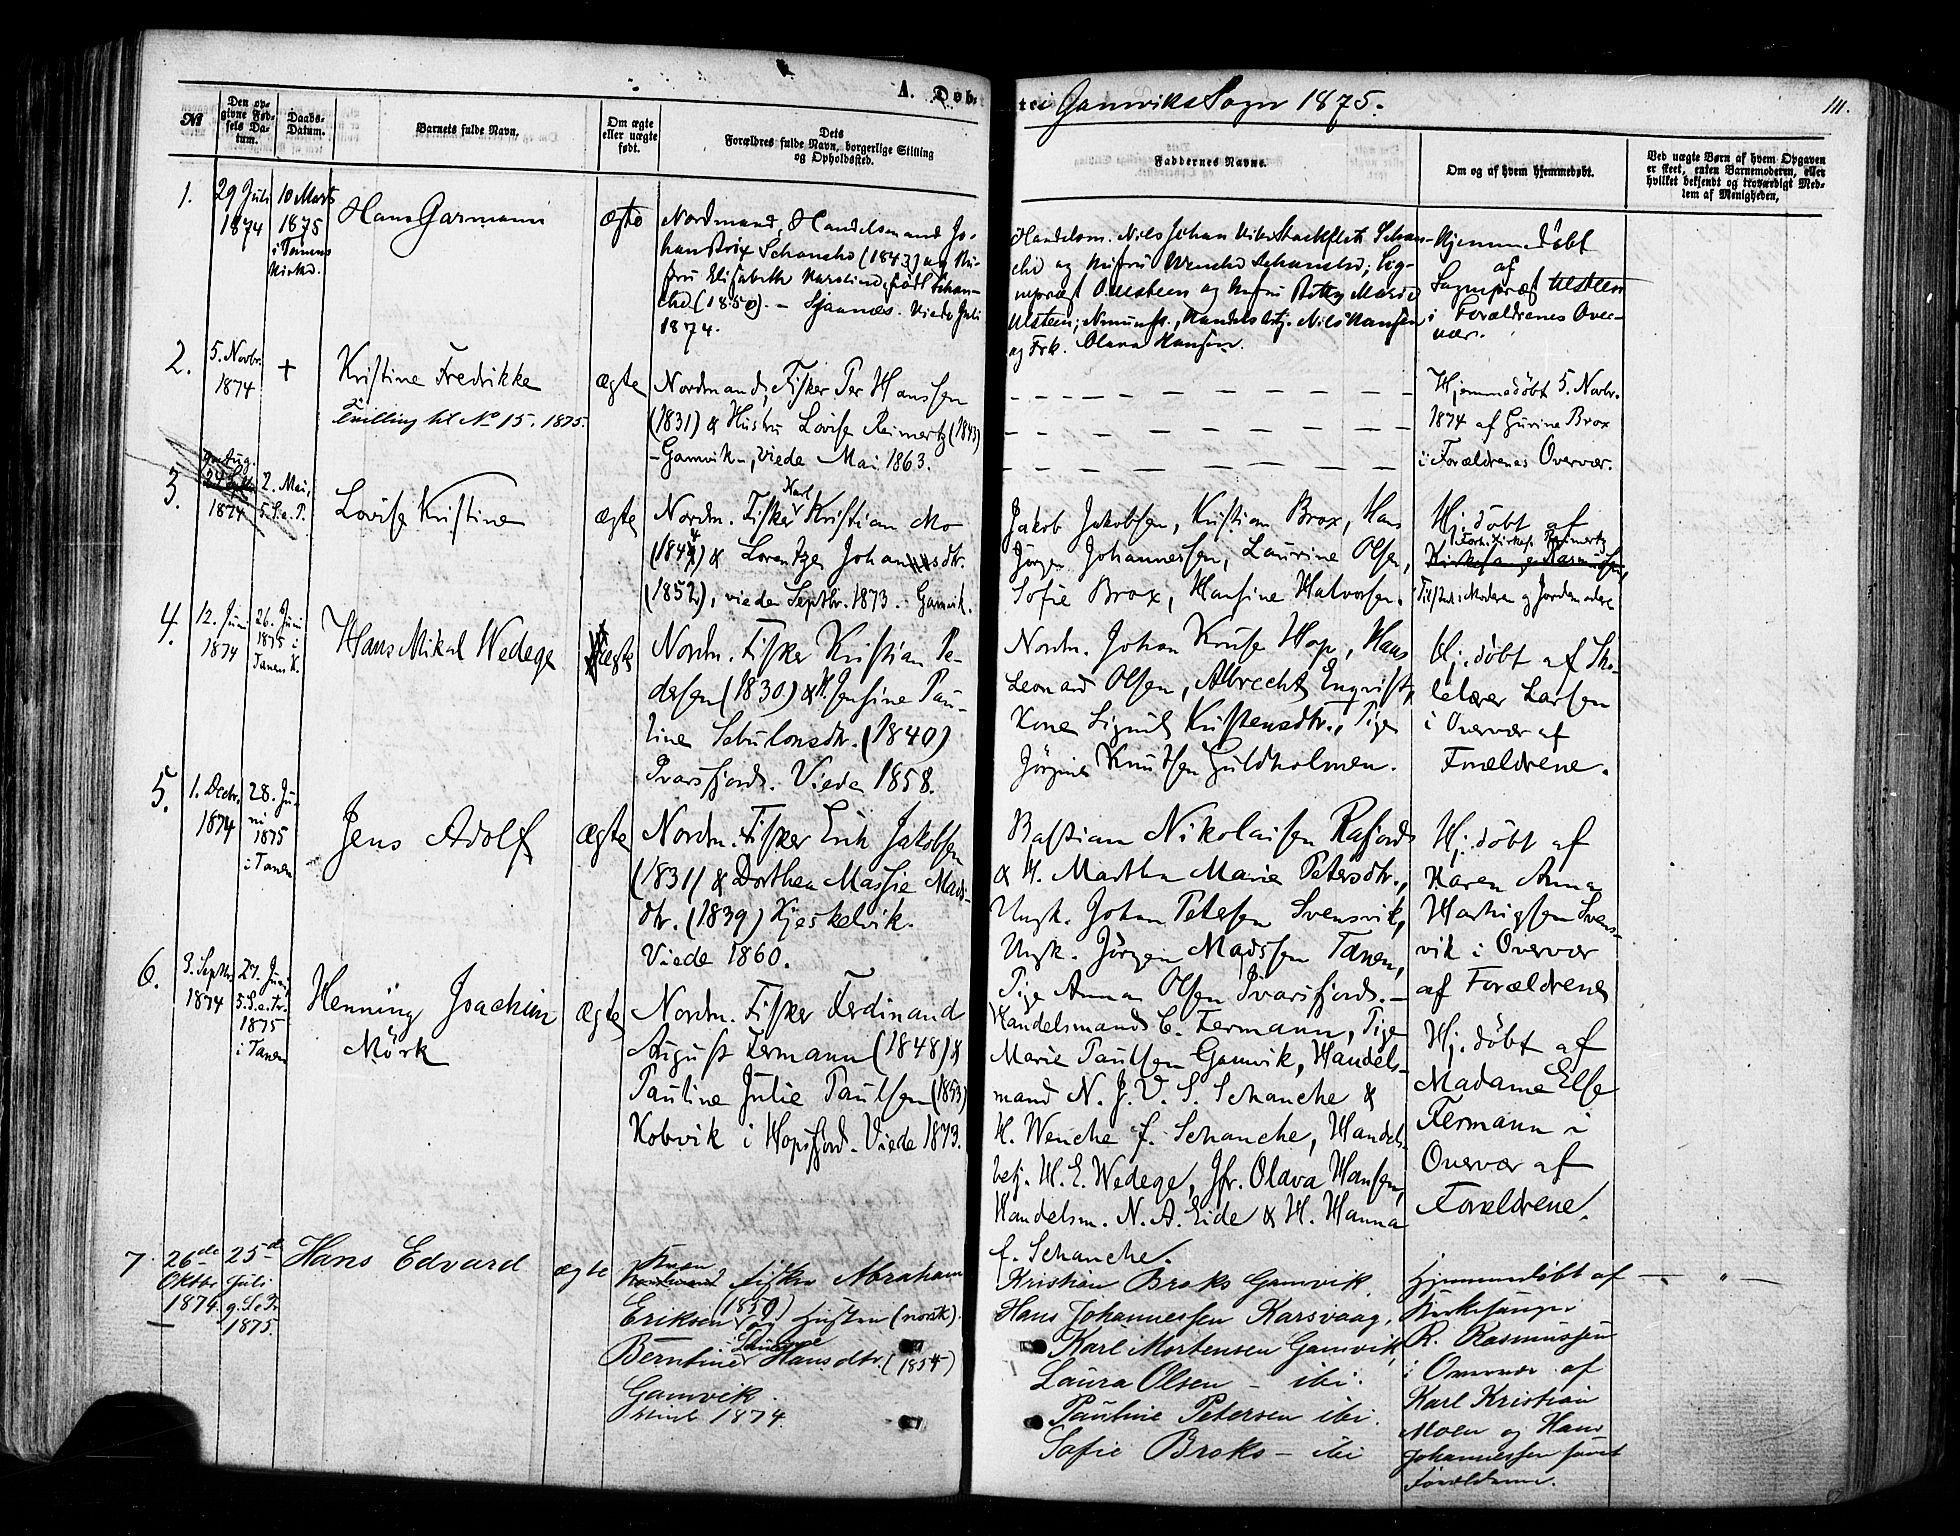 A. Døbte i Gamviks Sogn 1875.
111.
No
Den opgivne Fødsels Datum.
Daabs-Datum.
Barnets fulde Navn.
Om ægte eller uægte født.
Dets Forældres fulde Navn, borgerlige Stilling og Opholdssted.
Faddernes Navne.
Om og af hvem hjemmedøbt.
Ved uægte Børn af hvem Opgaven er skeet, enten Barnemoderen, eller hvilket bekjendt og troværdigt Medlem af Menigheden.
1.
29 Juli
1874
10 Marts
1875
i Tanens
Kirke.
Hans Garmann
ægte
Nordmand, Handelsmand Jo-
han Brix Schanche (1843) og Hu-
stru Elisabeth Karoline, født Schan-
che (1850). - Sjaanæs. Viede Juli
1874.
Handelsm. Nils Johan Vibe Stockfleth Schan-
che og Hustru Wenche Schanche; Sog-
nepræst Ulsteen og Hustru Betty Marie
Ulsteen; Handelsbetj. Nils Hansen
og Frk. Olava Hansen.
Hjemmedøbt
af
Sognepræst Ulsteen
i Forældrenes Over-
vær.
2.
5. Novbr.
1874
+
Kristine Fredrikke
Tvilling til No 15. 1875.
ægte
Nordmand, Fisker Per Hanssen
(1831) & Hustru Lovise Reimertz (1843)
- Gamvik -, Viede Mai 1863.
Hjemmedøbt 5. Novbr.
1874 af Gurine Brox
i Forældrenes Overvær.
3.
1874
2. Mai,
5. S. e. P.
Lovise Kristine
ægte
Nordm. Fisker Karl Kristian Mo
(1844) & Lorentze Johannsdtr.
(1852), viede Septbr. 1873. - Gamvik.
Jakob Jakobsen, Kristian Brox, Hans
Jørgen Johannessen, Laurine Olsen,
Sofie Brox, Hansine Halvorsen.
Hj. døbt af
Reimertz
Kirkesanger Rasmussen,
Tilsted: Moderen og Jordemoderen
4.
12. Juni
1874
26. Juni
1875 i
Tanen K.
Hans Mikal Wedege
ægte
Nordm. Fisker Kristian Pe-
dersen (1830) & H. Jensine Pau-
line Sebulonsdtr. (1840)
Ivarsfjord. Viede 1858.
Nordm. Johan Kruse Hop, Hans
Leonard Olsen, Albrecht Enqvist,
Kone Sigrid Kristensdtr., Pige
Jørgine Knutsen Guldholmen.
Hj. døbt af Sko-
lelærer Larsen
i Overvær af
Forældrene.
5.
1. Decbr.
1874
28. Ju-
ni
1875
i Tanen
Jens Adolf
ægte
Nordm. Fisker Erik Jakobsen
(1831) & Dorthea Massie Mads-
dtr. (1839) Kjeskelvik.
Viede 1860.
Bastian Nikolaisen Rafjord
& H. Martha Marie Petersdtr.,
Ungk. Johan Petersen Svensvik,
Ungk. Jørgen Madssen Tanen,
Pige Anna Olsen Ivarsfjord. -
Hj. døbt af
Karen Anna
Hartvigsen Svens-
vik i Overvær
af Forældrene
6.
3. Septbr.
1874
27. Juni
5. S. e. Tr.
1875
i Tanen
Henning Joachim
Mörk
ægte
Nordm. Fisker Ferdinand
August Fermann (1848) &
Pauline Julie Paulsen (1853)
Kobvik i Hopsfjord. Viede 1873.
Handelsmand C. Fermann, Pige
Marie Paulsen Gamvik, Handels-
mand N. J. V. S. Schanche &
H. Wenche f. Schanche, Handels-
betj. H. E. Wedege, Jfr. Olava Hansen,
Handelsm. N. A. Eide & H. Hanna
f. Schanche.
Hj. døbt af
Madame Else
Fermann i
Overvær af
Forældrene.
7.
26de
Oktbr
1874.
25de
Juli
9. S. e. Tr
1875.
Hans Edvard
ægte
Kvæn
Nordmand Fisker Abraham
Eriksen (1850) og Hustru (norsk).
Berntine Hansdtr. (1854)
Gamvik.
viede 1874.
Kristian Broks Gamvik.
Hans Johannessen Karsvaag,
Karl Mortensen Gamvik,
Laura Olsen - ibi.
Pauline Petersen ibi.
Sofie Broks - ibi
Hjemmedøbt af
Kirkesanger
R. Rasmussen
i Overvær af
Karl Kristian
Moen og Hans
Johannessen samt
Forældrene.
- " -